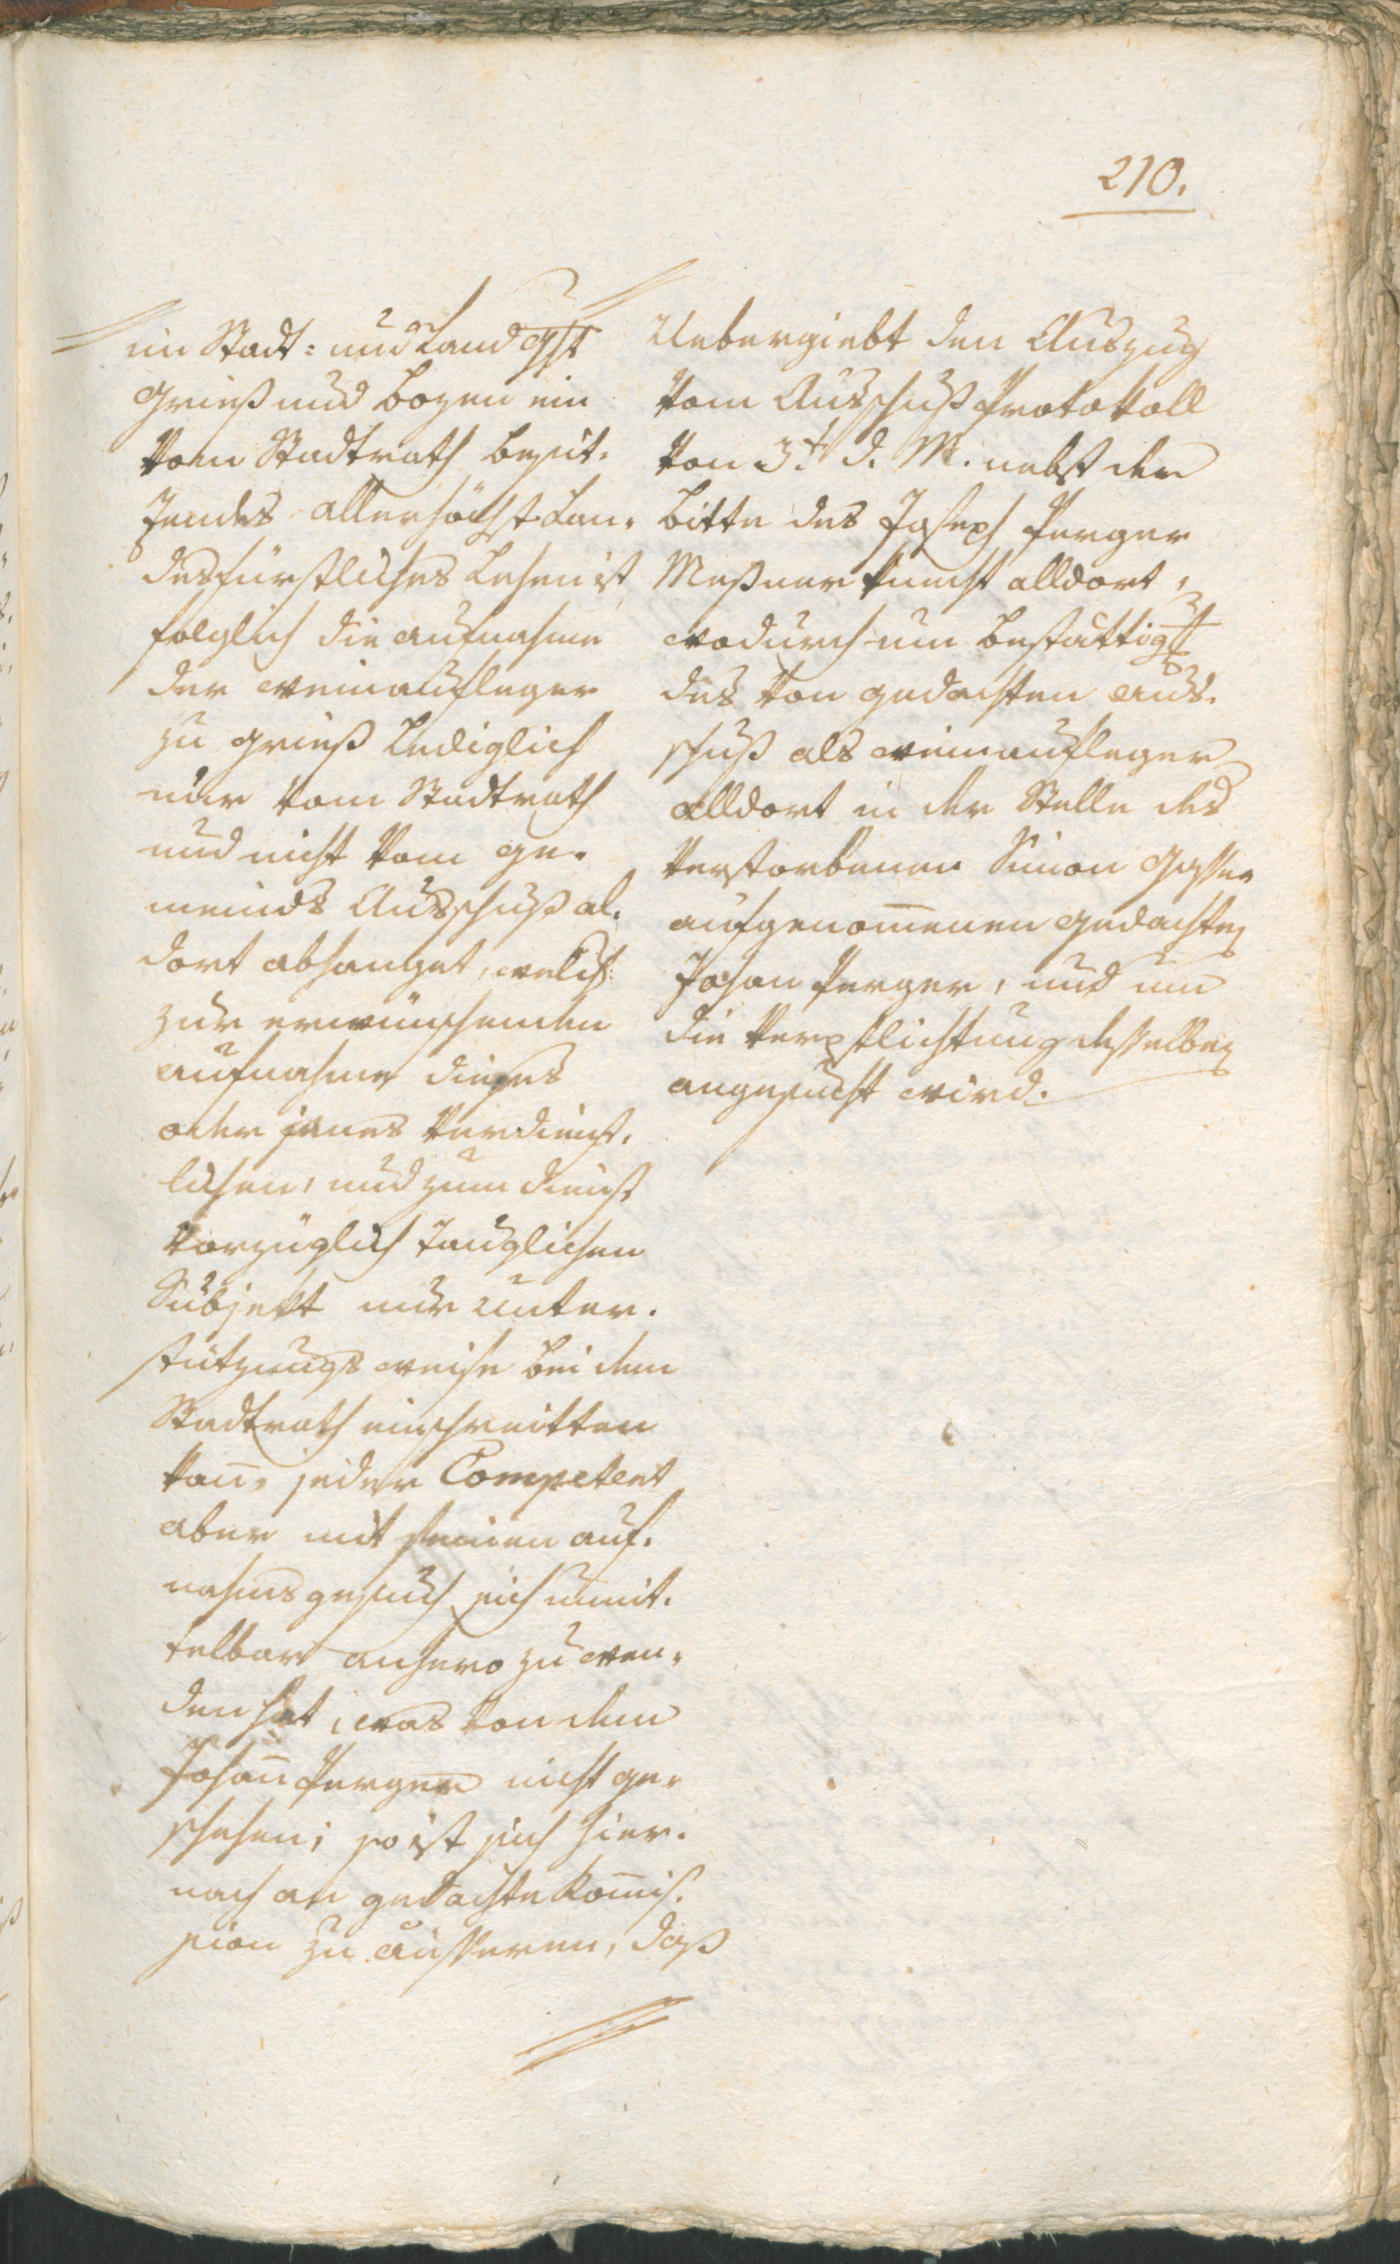 210.
im Stadt= und Landght
Grieß und Bozen ein
vom Stadtrath besit-
zendes allerhöchst Lan-
desfürstliches Lehen ist,
folglich die Aufnahme
der Weinaufleger
zu Grieß lediglich
nur vom Stadtrath
und nicht vom Ge-
meinds Ausschuß al-
dort abhanget, welch
zur erwünschenden
Aufnahme dieses
oder jenes verdienst-
lichen, und zum Dienst
vorzüglich tauglichen
Subjekt nur unter-
stützungsweise bei dem
Stadtrath einschreitten
kan̄, jeder Competent
aber mit seinen Auf-
nahmsgesuch sich unmit-
telbar anhero zu wen-
den hat, was von dem
Johan̄ Perger nicht ge-
schehen; so ist sich hier-
nach an gedachte Kom̄is-
sion zu äussern, daß
Uebergiebt den Auszug
vom Ausschuß Protokoll
von 3t d. M. nebst der
Bitte des Joseph Perger
Meßner Knecht alldort,
wodurch um Bestättigg
des von gedachten Aus-
schuß als Weinaufleger
alldort in der Stelle des
verstorbenen Simon Gasser
aufgenom̄enen gedachten
Johan Perger, und um
die Verpflichtung desselben
angesucht wird.